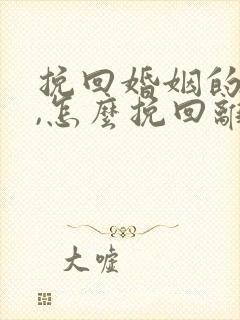 挽回婚姻的
,怎麼挽回離
大嘘